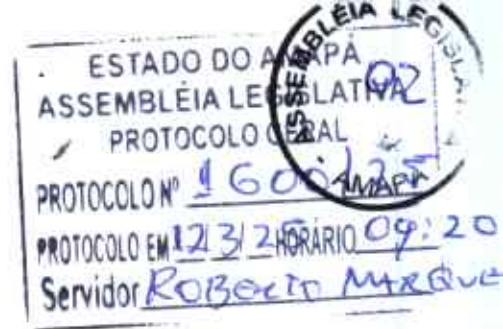 ESTADO DO AMAPÁ
ASSEMBLÉIA LEGISLATIVA
PROTOCOLO GERAL
PROTOCOLO Nº 1600/25
PROTOCOLO EM 12/3/25 HORÁRIO 09:20
Servidor ROBERTO MARQUE
ASSEMBLÉIA LEGISLA
AMAPÁ
02